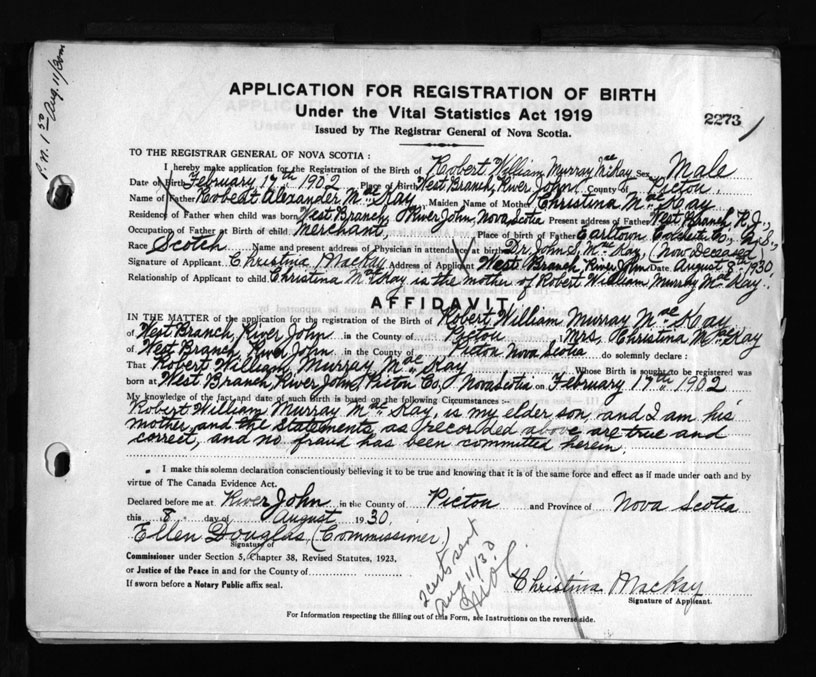 P.N. 1 50 Aug. 11/30
APPLICATION FOR REGISTRATION OF BIRTH
Under the Vital Statistics Act 1919
Issued by The Registrar General of Nova Scotia.
2273
TO THE REGISTRAR GENERAL OF NOVA SCOTIA :
I hereby make application for the Registration of the Birth of Robert William Murray McKay Sex Male
Date of Birth February 17th 1902 Place of Birth West Branch, River John County of Picton.
Name of Father Robert Alexander MacKay Maiden Name of Mother Christina MacKay
Residence of Father when child was born West Branch, River John, Nova Scotia Present address of Father West Branch, R.J.,
Occupation of Father at Birth of child Merchant, Place of birth of Father Earltown, Colchester Co., N.S.,
Race Scotch Name and present address of Physician in attendance at birth Dr. John S. MacKay, (Now Deceased
Signature of Applicant Christina MacKay Address of Applicant West Branch, River John Date August 8th 1930,
Relationship of Applicant to child Christina MacKay is the mother of Robert William Murray MacKay.
AFFIDAVIT
IN THE MATTER of the application for the registration of the Birth of Robert William Murray MacKay
of West Branch, River John in the County of Pictou Mrs. Christina MacKay
of West Branch, River John in the County of Picton Nova Scotia do solemnly declare :
That Robert William Murray MacKay Whose Birth is sought to be registered was
born at West Branch, River John, Picton Co., Nova Scotia on February 17th 1902
My knowledge of the fact and date of such birth is based on the following Circumstances :-
Robert William Murray MacKay, is my elder son, and I am his
mother, and the statements as recorded above are true and
correct, and no fraud has been committed herein.
I make this solemn declaration conscientiously believing it to be true and knowing that it is of the same force and effect as if made under oath and by
virtue of The Canada Evidence Act.
Declared before me at River John in the County of Picton and Province of Nova Scotia
this 8 day of August 1930,
Ellen Douglas (Commissioner)
Signature of
Commissioner under Section 5, Chapter 38, Revised Statutes, 1923,
or Justice of the Peace in and for the County of
If sworn before a Notary Public affix seal.
2 certs sent
Aug 11/30
Christina MacKay
Signature of Applicant.
For Information respecting the filling out of this Form, see Instructions on the reverse side.